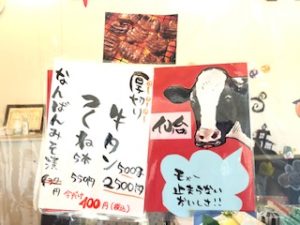 仙台
厚切り
牛タン
500g
2500円
つくね
550円
なんばんみそ漬
円
100円(税込)
モゥ〜
止まらない
おいしさ!!